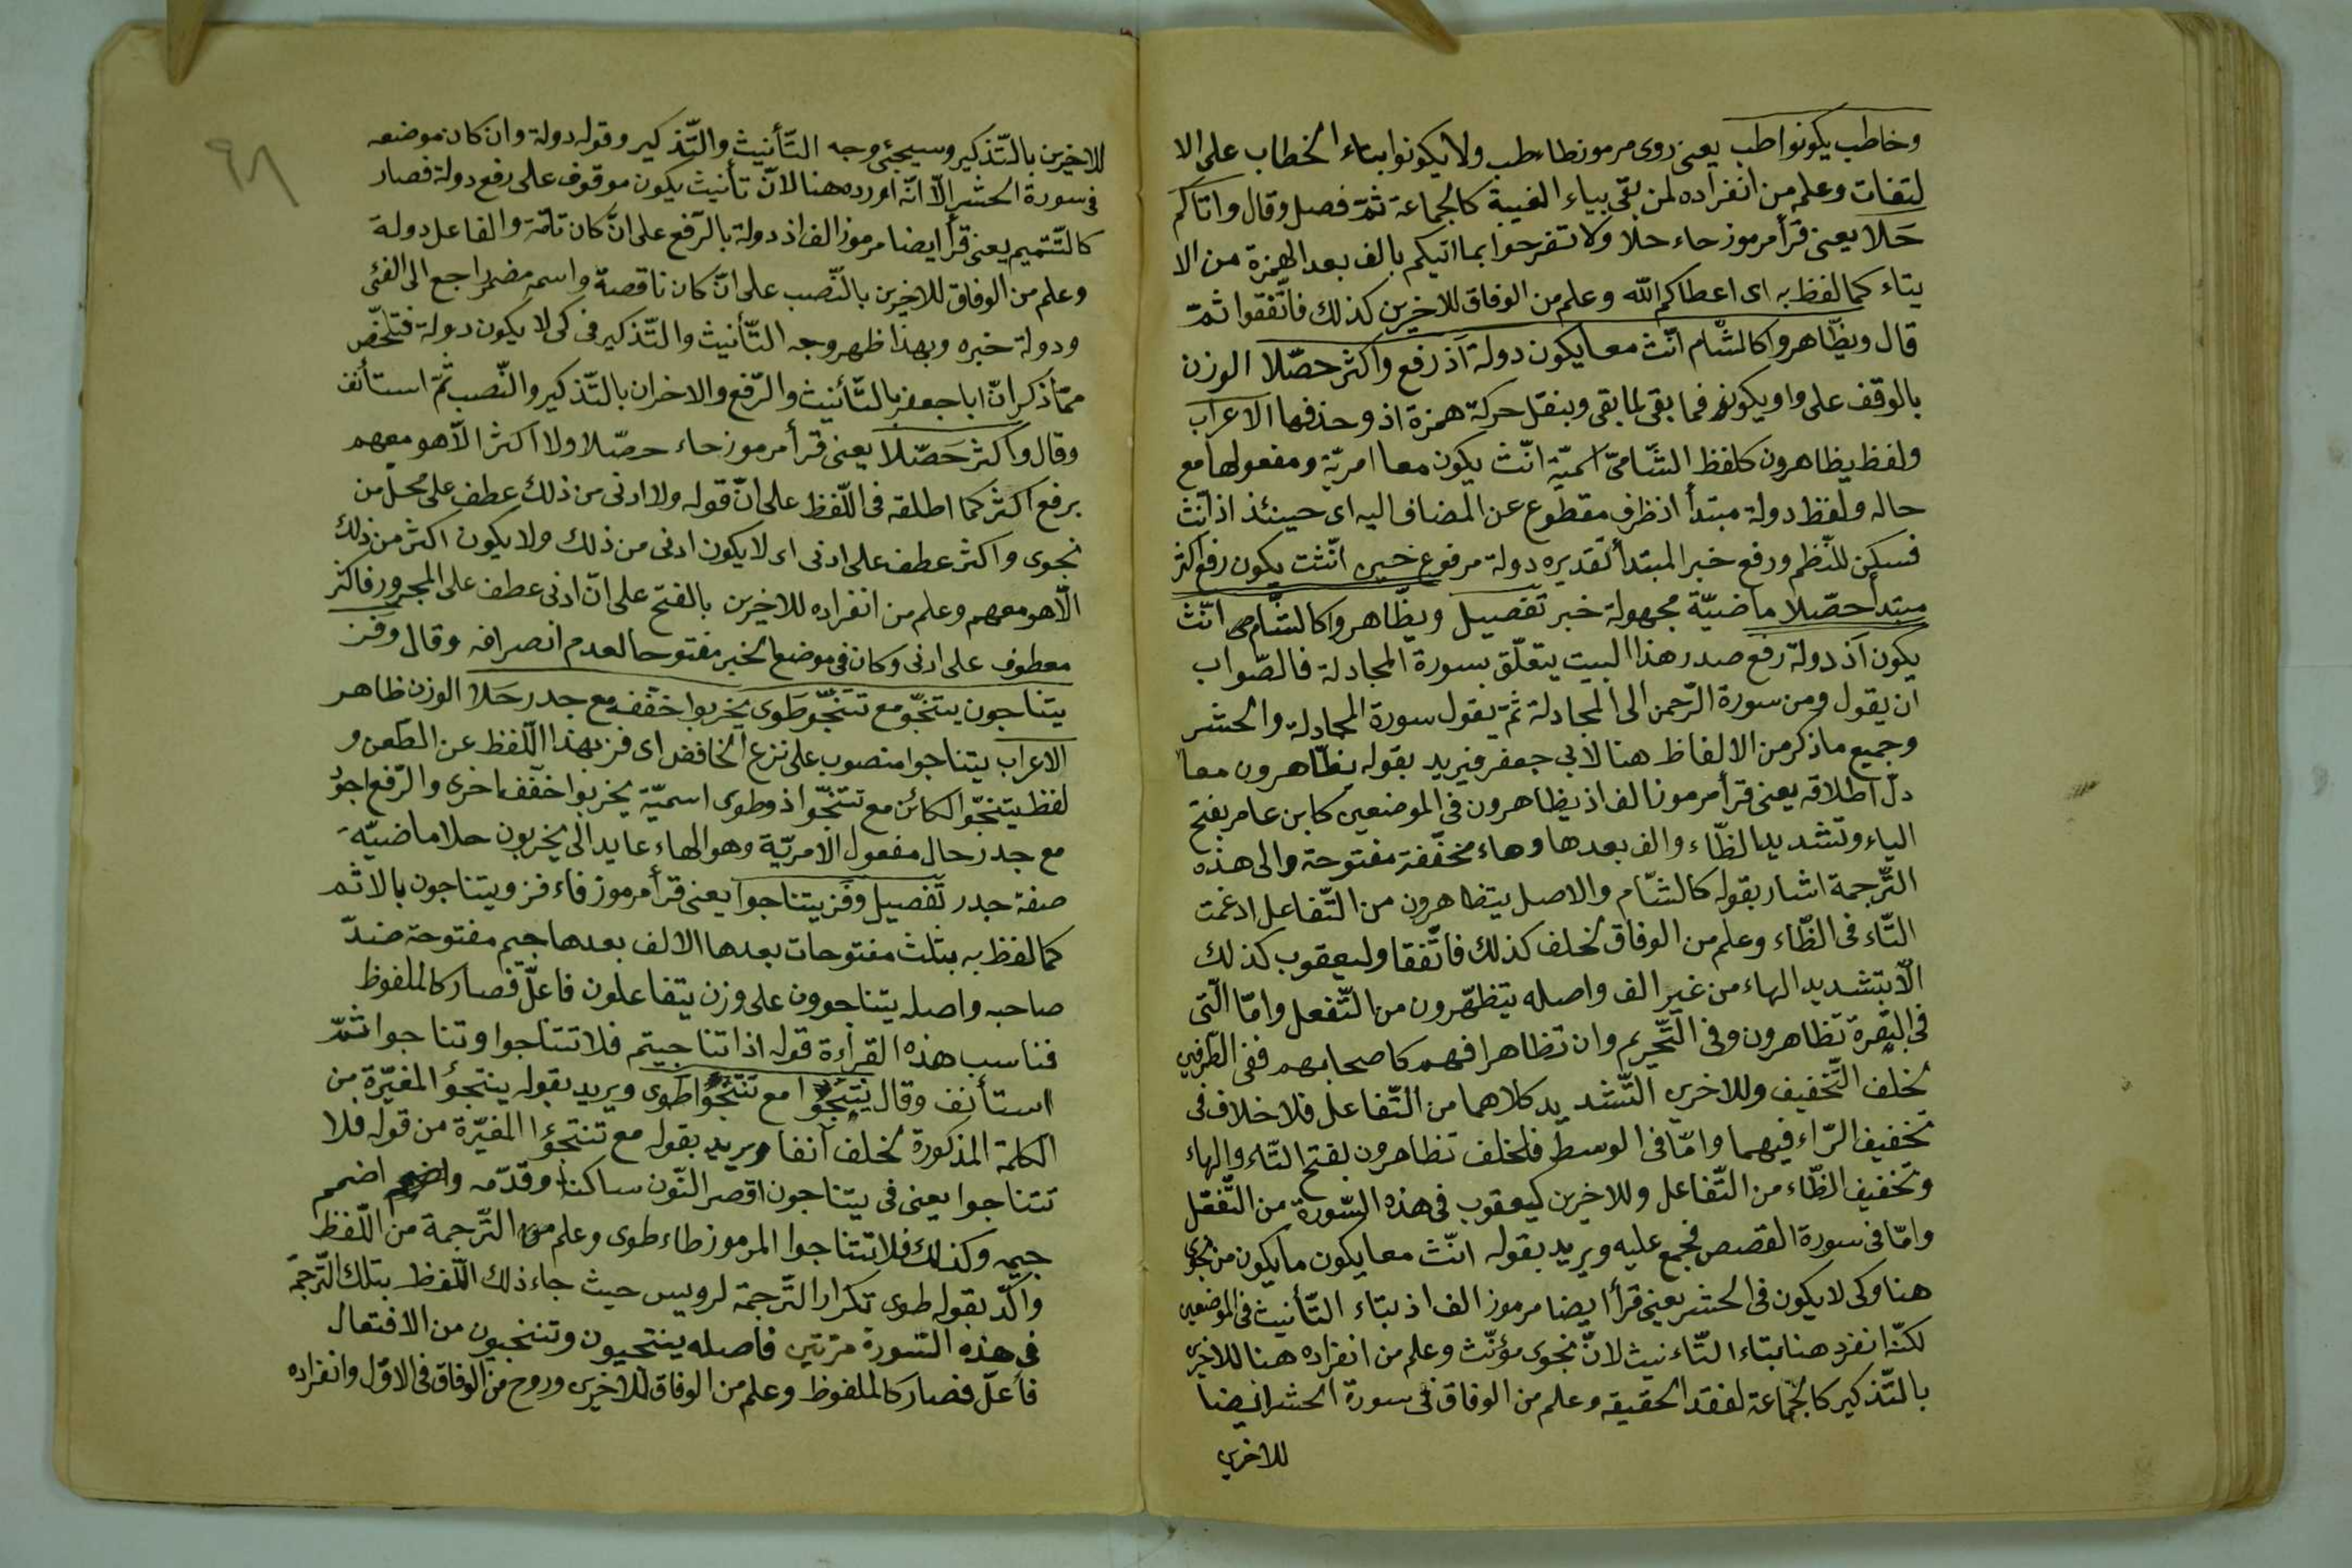 وخاطب يكونوا طب يعنى روى مرموز طاء طب ولا يكونوا بتاء الخطاب على الا
لتفات وعلم من انفراده لمن بقى بياء الغيبة كالجماعة ثمّ فصل وقال واتاكم
حَلا يعنى قرأ مرموز حاء حلا ولا تفرحوا بما اتيكم بالف بعد الهمزة من الا
يتاء كما لفظ به اى اعطاكم الله وعلم من الوفاق للاخرين كذلك فاتّفقوا ثمّ
قال ويظّاهروا كالشّام انّث معا يكون دولة اذ رفع واكثر حصّلا الوزن
بالوقف على واو يكونو فما بقى لما بقى وبنقل حركة همزة اذ وحذفها الاعراب
ولفظ يظاهرون كلفظ الشّامىّ اسميّة انّث يكون معا امريّة ومفعولها مع
حاله ولفظ دولة مبتدأ اذ ظرف مقطوع عن المضاف اليه اى حينئذ اذ انّث
فسكن للنّظم ورفع خبر المبتدأ تقديره دولة مرفوع خبره انّثت يكون رفع اكثر
مبتدأ حصّلا ماضيّة مجهولة خبر تفصيل ويظّاهروا كالشّام انّث
يكون اذ دولة رفع صدر هذا البيت يتعلّق بسورة المجادلة فالصّواب
ان يقول ومن سورة الرّحمن الى المجادلة ثمّ يقول سورة المجادلة والحشر
وجميع ما ذكر من الالفاظ هنا لابي جعفر فيريد بقوله يظّاهرون معا
دلّ اطلاقه يعنى قرأ مرموز الف اذ يظاهرون فى الموضعين كابن عامر بفتح
الياء وتشديد الظّاء والف بعدها وهاء مخفّفة مفتوحة والى هذه
التّرجمة اشار بقوله كالشّام والاصل يتظاهرون من التّفاعل ادغمت
التّاء فى الظّاء وعلم من الوفاق لخلف كذلك فاتّفقا وليعقوب كذلك
الّا بتشديد الهاء من غير الف واصله يتظهّرون من التّفعل وامّا الّتى
فى البقرة تظاهرون وفى التّحريم وان تظاهرا فهم كاصحابهم ففى الطّرفين
لخلف التّخفيف وللاخرين التّشديد كلاهما من التّفاعل فلا خلاف فى
تخفيف الرّاء فيهما وامّا فى الوسط فلخلف تظاهرون بفتح التّاء والهاء
وتخفيف الظّاء من التّفاعل وللاخرين كيعقوب فى هذه السّورة من التّفعّل
وامّا فى سورة القصص فجمع عليه ويريد بقوله انّث معا يكون ما يكون من نجوى
هنا وكى لا يكون فى الحشر يعنى قرأ ايضا مرموز الف اذ بتاء التّأنيث فى الموضعين
لكنّه انفرد هنا بتاء التّاءنيث لانّ نجوى مؤنّث وعلم من انفراده هنا للاخرين
بالتّذكير كالجماعة لفقد الحقيقه وعلم من الوفاق فى سورة الحشر ايضا
للاخرين
٩٨
للاخرين بالتّذكير وسيجئ وجه التّأنيث والتّذكير وقوله دولة وان كان موضعه
فى سورة الحشر الّا انّه اورده هنا لانّ تأنيث يكون موقوف على رفع دولة فصار
كالتّتميم يعنى قرأ ايضا مرموز الف اذ دولة بالرّفع على انّ كان تامّة والفاعل دولة
وعلم من الوفاق للاخرين بالنّصب على انّ كان ناقصة واسمه مضمر راجع الى الفئ
ودولة خبره وبهذا ظهر وجه التّأنيث والتّذكير فى كى لا يكون دولة فتلخّص
ممّا ذكر انّ ابا جعفر بالتّأنيث والرّفع والاخران بالتّذكير والنّصب ثمّ استأنف
وقال واكثر حَصّلا يعنى قرأ مرموز حاء حصّلا ولا اكثر الّا هو معهم
برفع اكثر كما اطلقه فى اللّفظ على انّ قوله ولا ادنى من ذلك عطف على محلّ من
نجوى واكثر عطف على ادنى اى لا يكون ادنى من ذلك ولا يكون اكثر من ذلك
الّا هو معهم وعلم من انفراده للاخرين بالفتح على انّ ادنى عطف على المجرور فاكثر
معطوف على ادنى وكان فى موضع الخبر مفتوحا لعدم انصرافه وقال وفز
يتناجون ينتجّو مع تنتجّو طَوى يخربوا خفّفه مع جدر حَلا الوزن ظاهر
الاعراب يتناجوا منصوب على نزع الخافض اى فز بهذا اللّفظ عن الطّعن و
لفظ ينتجّو الكائن مع تنتجّوا ذو طوى اسميّة يخربوا خفّف اخرى والرّفع اجود
مع جدر حال مفعول الامريّة وهو الهاء عايد الى يخربون حلا ماضيّة
صفة جدر تفصيل وفَز يتناجوا يعنى قرأ مرموز فاء فز ويتناجون بالاثم
كما لفظ به بثلث مفتوحات بعدها الالف بعدها جيم مفتوحة ضدّ
صاحبه واصله يتناجوون على وزن يتفاعلون فاعلّ فصار كالملفوظ
فناسب هذه القراءة قوله اذا تناجيتم فلا تتناجوا وتناجوا ثمّ
استأنف وقال ينتجُوا مع تنتجُوا طوى ويريد بقوله ينتجوُ المغيّرة من
الكلمة المذكورة لخلف آنفا ويريد بقوله مع تنتجوُا المغيّرة من قوله فلا
تتناجوا يعنى فى يتناجون اقصر النّون ساكنا وقدّمه واضمم
جيمه وكذلك فلا تتناجوا المرموز طاء طوى وعلم من التّرجمة من اللّفظ
واكّد بقوله طوى تكرار التّرجمة لرويس حيث جاء ذلك اللّفظ بتلك التّرجمة
فى هذه السّورة مرّتين فاصله ينتجيون وتنتجيون من الافتعال
فأعلّ فصار كالملفوظ وعلم من الوفاق للاخرين وروح من الوفاق فى الاوّل وانفراده